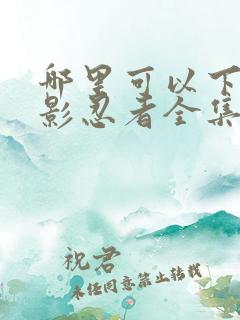 哪里可以下
影忍者全集
祝君
未经同意禁止转载